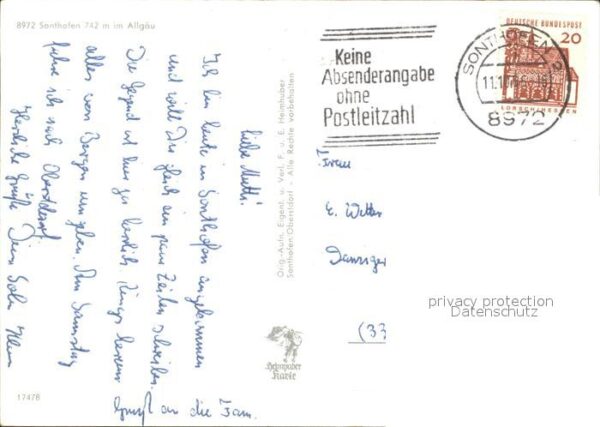 8972 Sonthofen 742 m im Allgäu
Liebe Mutti!
Ich bin heute in Sonthofen angekommen
und will Dir gleich ein paar Zeilen schreiben.
Die Gegend ist hier so herrlich. Rings herum
alles von Bergen umgeben. Am Samstag
fahre ich nach Oberstdorf.
Herzliche Grüße Dein Sohn
Gruß an die Fam.
Orig.-Aufn. Eigent. u. Verl. F. u. E. Heimhuber
Sonthofen/Oberstdorf - Alle Rechte vorbehalten
Heimhuber
Karte
17478
Keine
Absenderangabe
ohne
Postleitzahl
SONTHOFEN
8972
DEUTSCHE BUNDESPOST
20
LORSCH/HESSEN
Frau
E. Wetter
Danziger
(33
privacy protection
Datenschutz